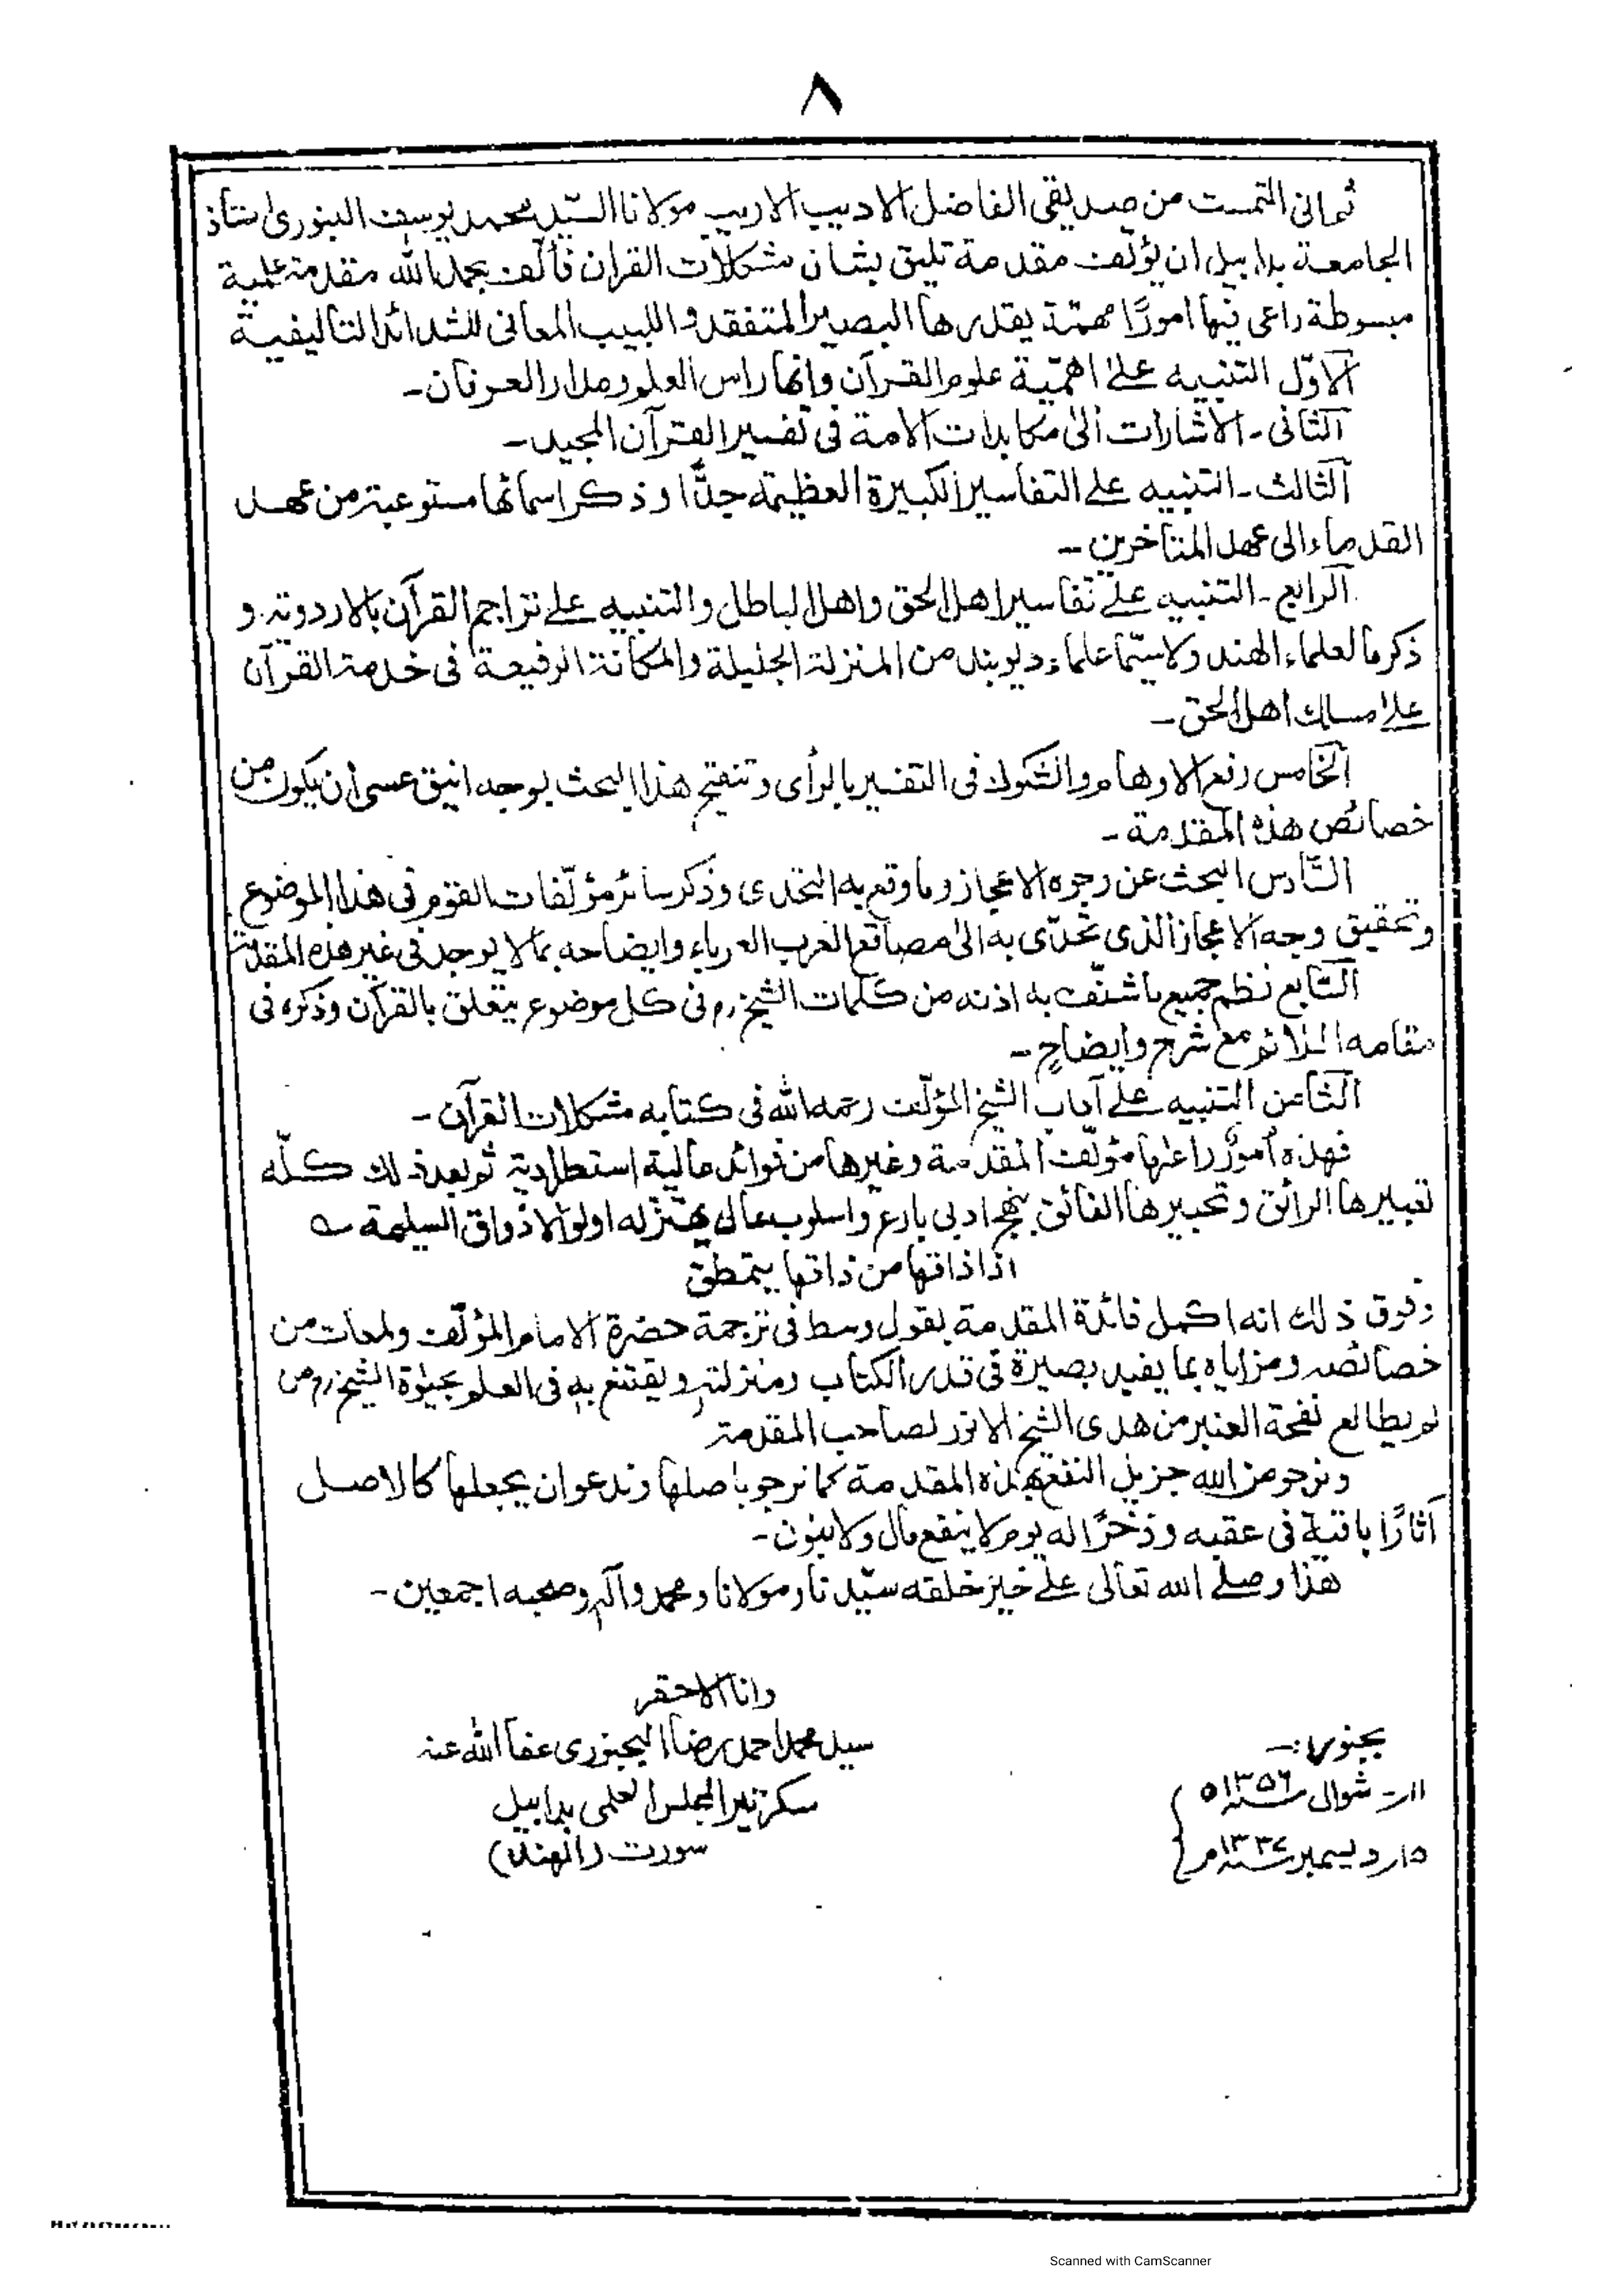 ٨
ثم انی التمست من صدیقی الفاضل الادیب الاریب مولانا السّید محمد یوسف البنوری استاذ
الجامعة بدابیل ان یؤلّف مقدمة تلیق بشان مشکلات القران فألّف بحمد الله مقدمة علمیة
مبسوطة راعی فیها امورًا مهمّة یقدرها البصیر المتفقد و اللبیب المعانی للشدائد التالیفیة
الاوّل التنبیه علیٰ اهمّیة علوم القرآن وانها راس العلم ومدار العرفان ـ
الثانی ـ الاشارات الیٰ مکابدات الامة فی تفسیر القرآن المجید ـ
الثالث ـ التنبیه علی التفاسیر الکبیرة العظیمة جدًّا و ذکر اسمائها مستوعبة من عهد
القدماء الی عهد المتأخرین ـ
الرابع ـ التنبیه علی تفاسیر اهل الحق واهل الباطل والتنبیه علی تراجم القرآن بالاردویة و
ذکر ما لعلماء الهند ولا سیّما علماء دیوبند من المنزلة الجلیلة والمکانة الرفیعة فی خدمة القرآن
علیٰ مسلك اهل الحق ـ
الخامس رفع الاوهام والشکوك فی التفسیر بالرأی و تنقیح هذا البحث بوجه انیق عسی أن یکون من
خصائص هذه المقدمة ـ
السّادس البحث عن وجوه الاعجاز وما وقع به التحدی وذکر سائر مؤلّفات القوم فی هذا الموضوع
وتحقیق وجه الاعجاز الذی تحدّی به الیٰ مصاقع العرب العرباء وایضاحه بما لا یوجد فی غیر هذه المقدمة
السّابع نظم جمیع ما شنّف به اذنه من کلمات الشیخ رح فی کل موضوع یتعلق بالقرآن وذکره فی
مقامه اللائق مع شرح وایضاحٍ ـ
الثامن التنبیه علی آداب الشیخ المؤلّف رحمه الله فی کتابه مشکلات القرآن ـ
فهذه أمورٌ راعٰها مؤلّف المقدّمة وغیرها من فوائد عالیة استطرادیة ثم بعد ذلك کلّه
تعبیرها الرائق و تحبیرها الفائق بنهج ادبی بارع واسلوب عال یهتزّ له اولوا الاذواق السلیمة
اذا ذاقها من ذاقها یتمطق
وفوق ذلك انه اکمل فائدة المقدمة بقول وسط فی ترجمة حضرة الامام المؤلّف ولمعات من
خصائصه ومزایاه بما یفید بصیرة فی قدر الکتاب ومنزلته ویقتنع به فی العلم بحیٰوة الشیخ رح من
لم یطالع نفحة العنبر من هدی الشیخ الانور لصاحب المقدمة
ونرجو من الله جزیل النفع بهذه المقدمة کما نرجو باصلها وندعو ان یجعلها کالاصل
آثارًا باقیة فی عقبه وذخرًا له یوم لا ینفع مال ولا بنون ـ
هذا وصلی الله تعالی علی خیر خلقه سیّدنا ومولانا ومحمد وآله وصحبه اجمعین ـ
وانا الاحقر
سید محمد احمد رضا البجنوری عفا الله عنه
سکرتیر المجلس العلمی بدابیل
سورت (الهند)
بجنور :ـ
۱۱ر شوال سنه ۱۳۵۶ ه
۱۵ر دیسمبر سنه ۱۳۳۷ م
Scanned with CamScanner